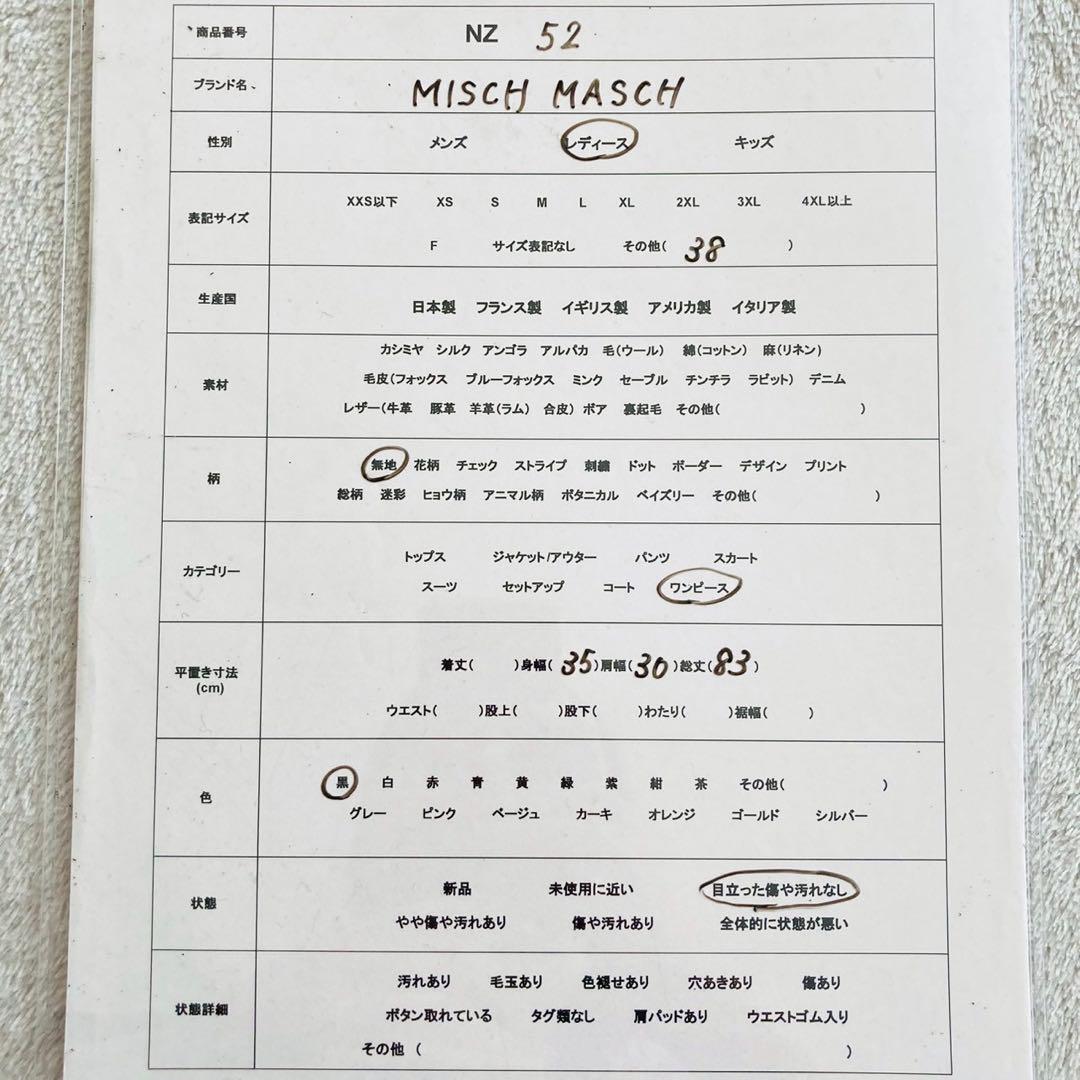 商品番号 NZ 52
ブランド名、 MISCH MASCH
性別 メンズ レディース キッズ
表記サイズ
XXS以下 XS S M L XL 2XL 3XL 4XL以上
F サイズ表記なし その他( 38 )
生産国 日本製 フランス製 イギリス製 アメリカ製 イタリア製
素材
カシミヤ シルク アンゴラ アルパカ 毛(ウール) 綿(コットン) 麻(リネン)
毛皮(フォックス ブルーフォックス ミンク セーブル チンチラ ラビット) デニム
レザー(牛革 豚革 羊革(ラム) 合皮) ボア 裏起毛 その他( )
柄
無地 花柄 チェック ストライプ 刺繍 ドット ボーダー デザイン プリント
総柄 迷彩 ヒョウ柄 アニマル柄 ボタニカル ペイズリー その他( )
カテゴリー
トップス ジャケット/アウター パンツ スカート
スーツ セットアップ コート ワンピース
平置き寸法
(cm)
着丈( )身幅( 35 )肩幅( 30 )総丈( 83 )
ウエスト( )股上( )股下( )わたり( )裾幅( )
色
黒 白 赤 青 黄 緑 紫 紺 茶 その他( )
グレー ピンク ベージュ カーキ オレンジ ゴールド シルバー
状態
新品 未使用に近い 目立った傷や汚れなし
やや傷や汚れあり 傷や汚れあり 全体的に状態が悪い
状態詳細
汚れあり 毛玉あり 色褪せあり 穴あきあり 傷あり
ボタン取れている タグ類なし 肩パッドあり ウエストゴム入り
その他 ( )